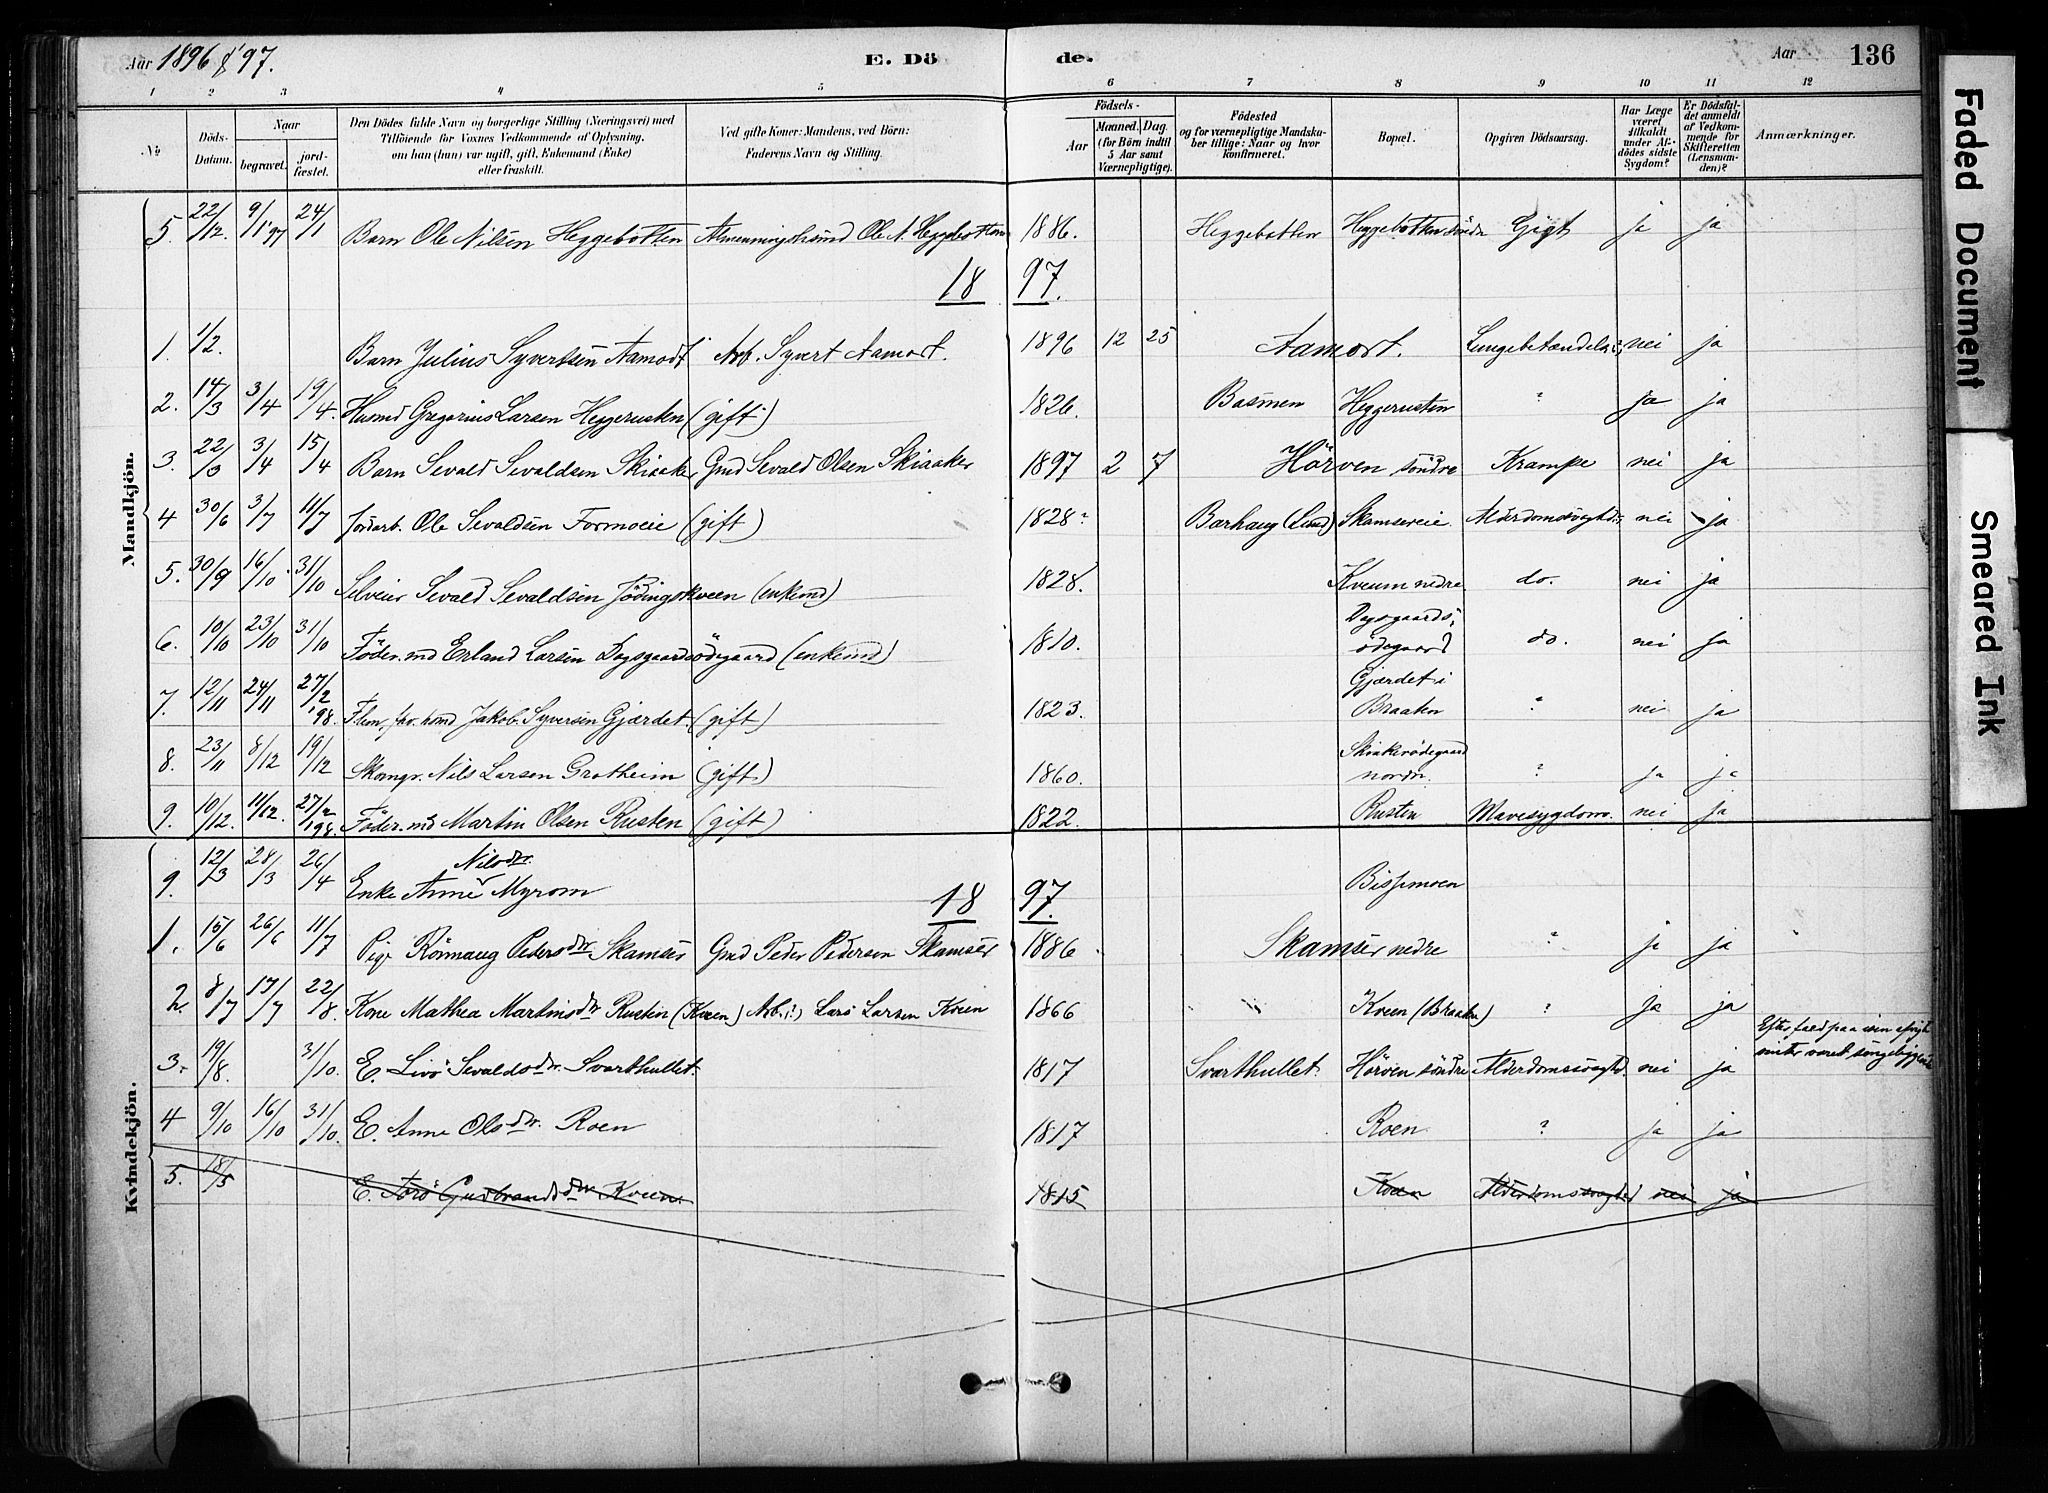 Aar 1896 & 97.
E. Dö
de.
Aar
136
1 2 3 4 5 6 7 8 9 10 11 12
No
Döds-
Datum.
Naar
begravet.
jord-
fæstet.
Den Dödes fulde Navn og borgerlige Stilling (Næringsvei) med
Tilföiende for Voxnes Vedkommende af Oplysning,
om han (hun) var ugift, gift, Enkemand (Enke)
eller fraskilt.
Ved gifte Koner: Mandens, ved Börn:
Faderens Navn og Stilling.
Födsels-
Aar
Maaned. Dag.
(for Börn indtil
5 Aar samt
Værnepligtige).
Födested
og for værnepligtige Mandska-
ber tillige: Naar og hvor
konfirmeret.
Bopæl.
Opgiven Dödsaarsag.
Har Læge
været
tilkaldt
under Af-
dödes sidste
Sygdom?
Er Dödsfal-
det anmeldt
af Vedkom-
mende for
Skifteretten
(Lensman-
den)?
Anmærkninger.
Mandkjön.
5. 22/12. 9/1 97 24/1 Barn Ole Nilsen Heggebotten Ole N. Heggebotten 1886. Heggebotten Heggebotten söndre Gigt ja ja
18 97.
1. 1/2. Barn Julius Syvertsen Aamodt Arb. Syvert Aamodt. 1896 12 25 Aamodt. Lungebetændelse nei ja
2. 14/3 3/4 19/4. Husmd Gregorius Larsen Heggerusten (gift) 1826. Basmen Heggerusten ? ja ja
3. 22/3 3/4 15/4 Barn Sevald Sevaldsen Skiaaker Gmd Sevald Olsen Skiaaker 1897 2 7 Hörven söndre Krampe nei ja
4 30/6 3/7 11/7 Jordarb. Ole Sevaldsen Formoeie (gift) 1828 Barhaug (Lund) Skamsereie. Alderdomssvaghd. nei ja
5. 30/9 16/10. 31/10 Selveier Sevald Sevaldsen Jödingskveen (enkemd) 1828. Kveum nedre do. nei ja
6. 10/10 23/10 31/10 Föder.md Erland Larsen Dagsgaardsödegaard (enkemd) 1810. Dagsgaards-
ödegaard do. nei ja
7. 12/11 24/11 27/2 98. Jakob Syversen Gjærdet. (gift) 1823. Gjærdet i
Braaten ? nei ja
8. 23/11 8/12 19/12 Skomgr. Nils Larsen Grotheim (gift.) 1860.
nordre. ? ja ja
9. 10/12. 11/12. 27/2 98. Föder.md Martin Olsen Rusten (gift) 1822. Rusten Mavesygdom. nei ja
Kvindekjön.
9. 12/3 28/3 26/4 Enke Anne Nilsdtr. Myrom Bissmoen
18 97.
1. 15/6 26/6 11/7 Pige Rönnaug Pedersdtr Skamser Gmd Peder Pedersen Skamser 1886 Skamser nedre ? ja ja
2. 8/7 17/7 22/8. Kone Mathea Martinsdtr Rusten (Kveen) Arb. (?) Lars Larsen Kveen 1866 " Kveen (Braaten) ? ja ja
3. 19/8. 31/10. E. Livö Sevaldsdtr. Svarthullet. 1817 Svarthullet. Hörven söndre Alderdomssvaghd. nei ja Efter fald paa isen
vinter været sengeliggende
4 9/10 16/10 31/10. E. Anne Olsdtr. Roen 1817 Roen ? ja ja
5. 18/5 E. Torö Gudbrandsdtr Kveen. 1815 Kveen Alderdomssvaghed nei ja
Faded Document
Smeared Ink